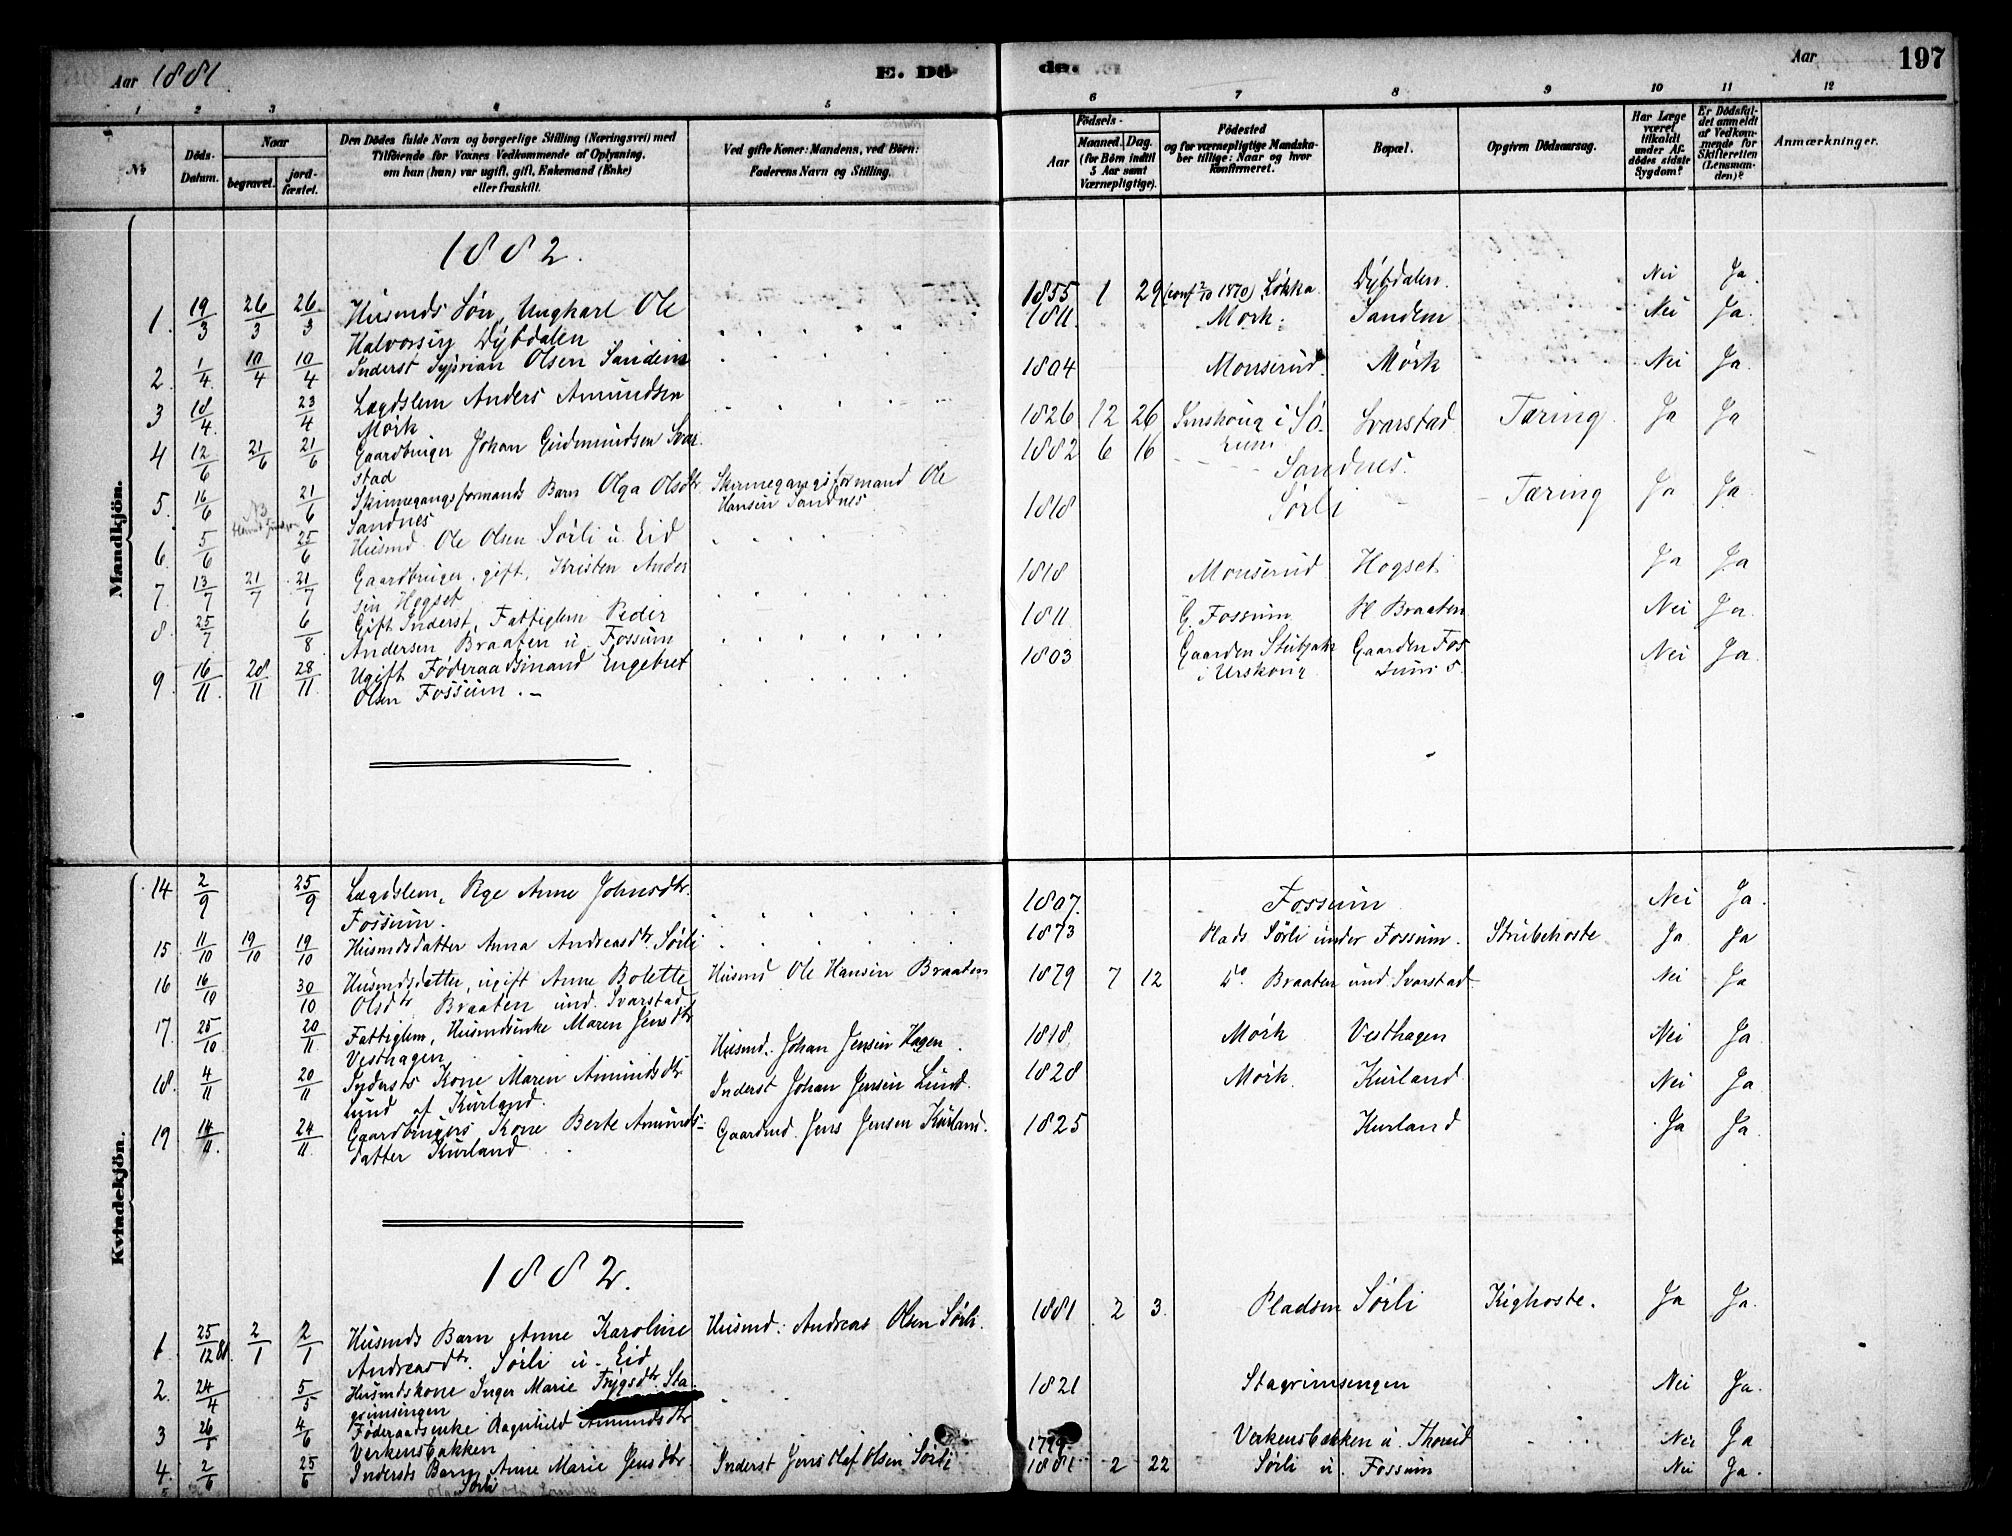 Aar 1881. E. Dö de. Aar 197
1 2 3 4 5 6 7 8 9 10 11 12
No
Döds-Datum.
Naar
begravet. jordfæstet.
Den Dödes fulde Navn og borgerlige Stilling (Næringsvei) med
Tilföiende for Voxnes Vedkommende af Oplysning,
om han (hun) var ugift, gift, Enkemand (Enke)
eller fraskilt.
Ved gifte Koner: Mandens, ved Börn:
Faderens Navn og Stilling.
Födsels-
Aar Maaned. Dag.
(for Börn indtil
5 Aar samt
Værnepligtige).
Födested
og for værnepligtige Mandskaber tillige: Naar og hvor
konfirmeret.
Bopæl.
Opgiven Dödsaarsag.
Har Læge
været
tilkaldt
under Afdödes sidste
Sygdom?
Er Dödsfaldet anmeldt
af Vedkommende for
Skifteretten
(Lensmanden)?
Anmærkninger.
Mandkjön.
1882.
1. 19/3 26/3 26/3 Husmds Søn, Ungkarl Ole 1855 1 29 (conf 2/10 1870) Løkka Dybdalen. Nei Ja.
Halvorsen Dybdalen
2. 1/4 10/4 10/4 Inderst Syprian Olsen Sandem 1811. Mørk. Sandem Nei Ja.
3 18/4. 23/4 Lægdslem Anders Amundsen 1804 Monserud. Mørk Nei Ja.
Mørk
4 12/6 21/6 21/6 Gaardbruger Johan Gudmundsen Svar- 1826 12 26 i Sø- Svarstad Tæring Ja Ja
stad rum
5. 16/6 21/6 Skinnegangsformands Barn Olga Olsdtr Skinnegangsformand Ole 1882 6 16 Sandnes.
Sandnes Hansen Sandnes
6. 5/6 25/6 Husmd Ole Olsen Sørli u. Eid 1818 Sørli Tæring Ja Ja.
7. 13/7 21/7 21/7 Gaardbruger, gift, Kristen Ander 1818 Monserud Hogset Ja Ja
sen Hogset
8. 25/7 6/8 Gift Inderst, Fattiglem Peder 1811 G. Fossum Pl Braaten Nei Ja
Andersen Braaten u. Fossum
9. 16/11. 28/11 28/11. Ugift Føderaadsmand Engebret 1803 Gaarden Gaarden Fos Nei Ja.
Olsen Fossum. i Urskoug sum
Kvindekjön.
14 2/9 25/9 Lægdslem, Pige Anne Johnsdtr. 1807. Fossum Nei Ja.
Fossum.
15 11/10 19/10 19/10 Husmdsdatter Anna Andreasdtr Sørli 1873 Plads Sørli under Fossum. Strubehoste Ja Ja
16 16/10 30/10 Husmdsdatter, ugift Anne Bolette Husmd Ole Hansen Braaten 1879 7 12 Do Braaten und Svarstad Nei Ja
Olsdtr Braaten und. Svarstad.
17. 25/10. 20/11. Fattiglem, Husmdsenke Maren Jensdtr Husmd. Johan Jensen Hagen. 1818. Mørk Vesthagen Nei Ja
Vesthagen
18. 4/11 20/11 Indersts Kone Maren Amundsdtr Inderst Johan Jensen Lund. 1828 Mørk. Kurland Nei Ja.
Lund af Kurland.
19 14/11. 24/11. Gaardbrugers Kone Berte Amunds- Gaardmd. Jens Jensen Kurland. 1825 Kurland Ja Ja.
datter Kurland
1882.
1. 25/12 81. 2/1 2/1 Husmds Barn Anne Karoline Husmd. Andreas Olsen Sørli. 1881 2 3 Pladsen Sørli Kighoste. Ja Ja.
Andreasdtr. Sørli u. Eid
2. 24/4 5/5 Husmdskone Inger Marie Trygsdtr. Sta 1821 Stagrimsengen Nei Ja.
grimsengen
3 26/5 4/6 Føderaadsenke Ragnhild Amundsdtr 1799. Verkensbakken u. Thorud Nei Ja
Verkensbakken
4. 2/6 25/6 Indersts Barn Anne Marie Jensdtr Inderst Jens Olaf Olsen Sørli 1881 2 22 Sørli u. Fossum Nei Ja.
Sørli